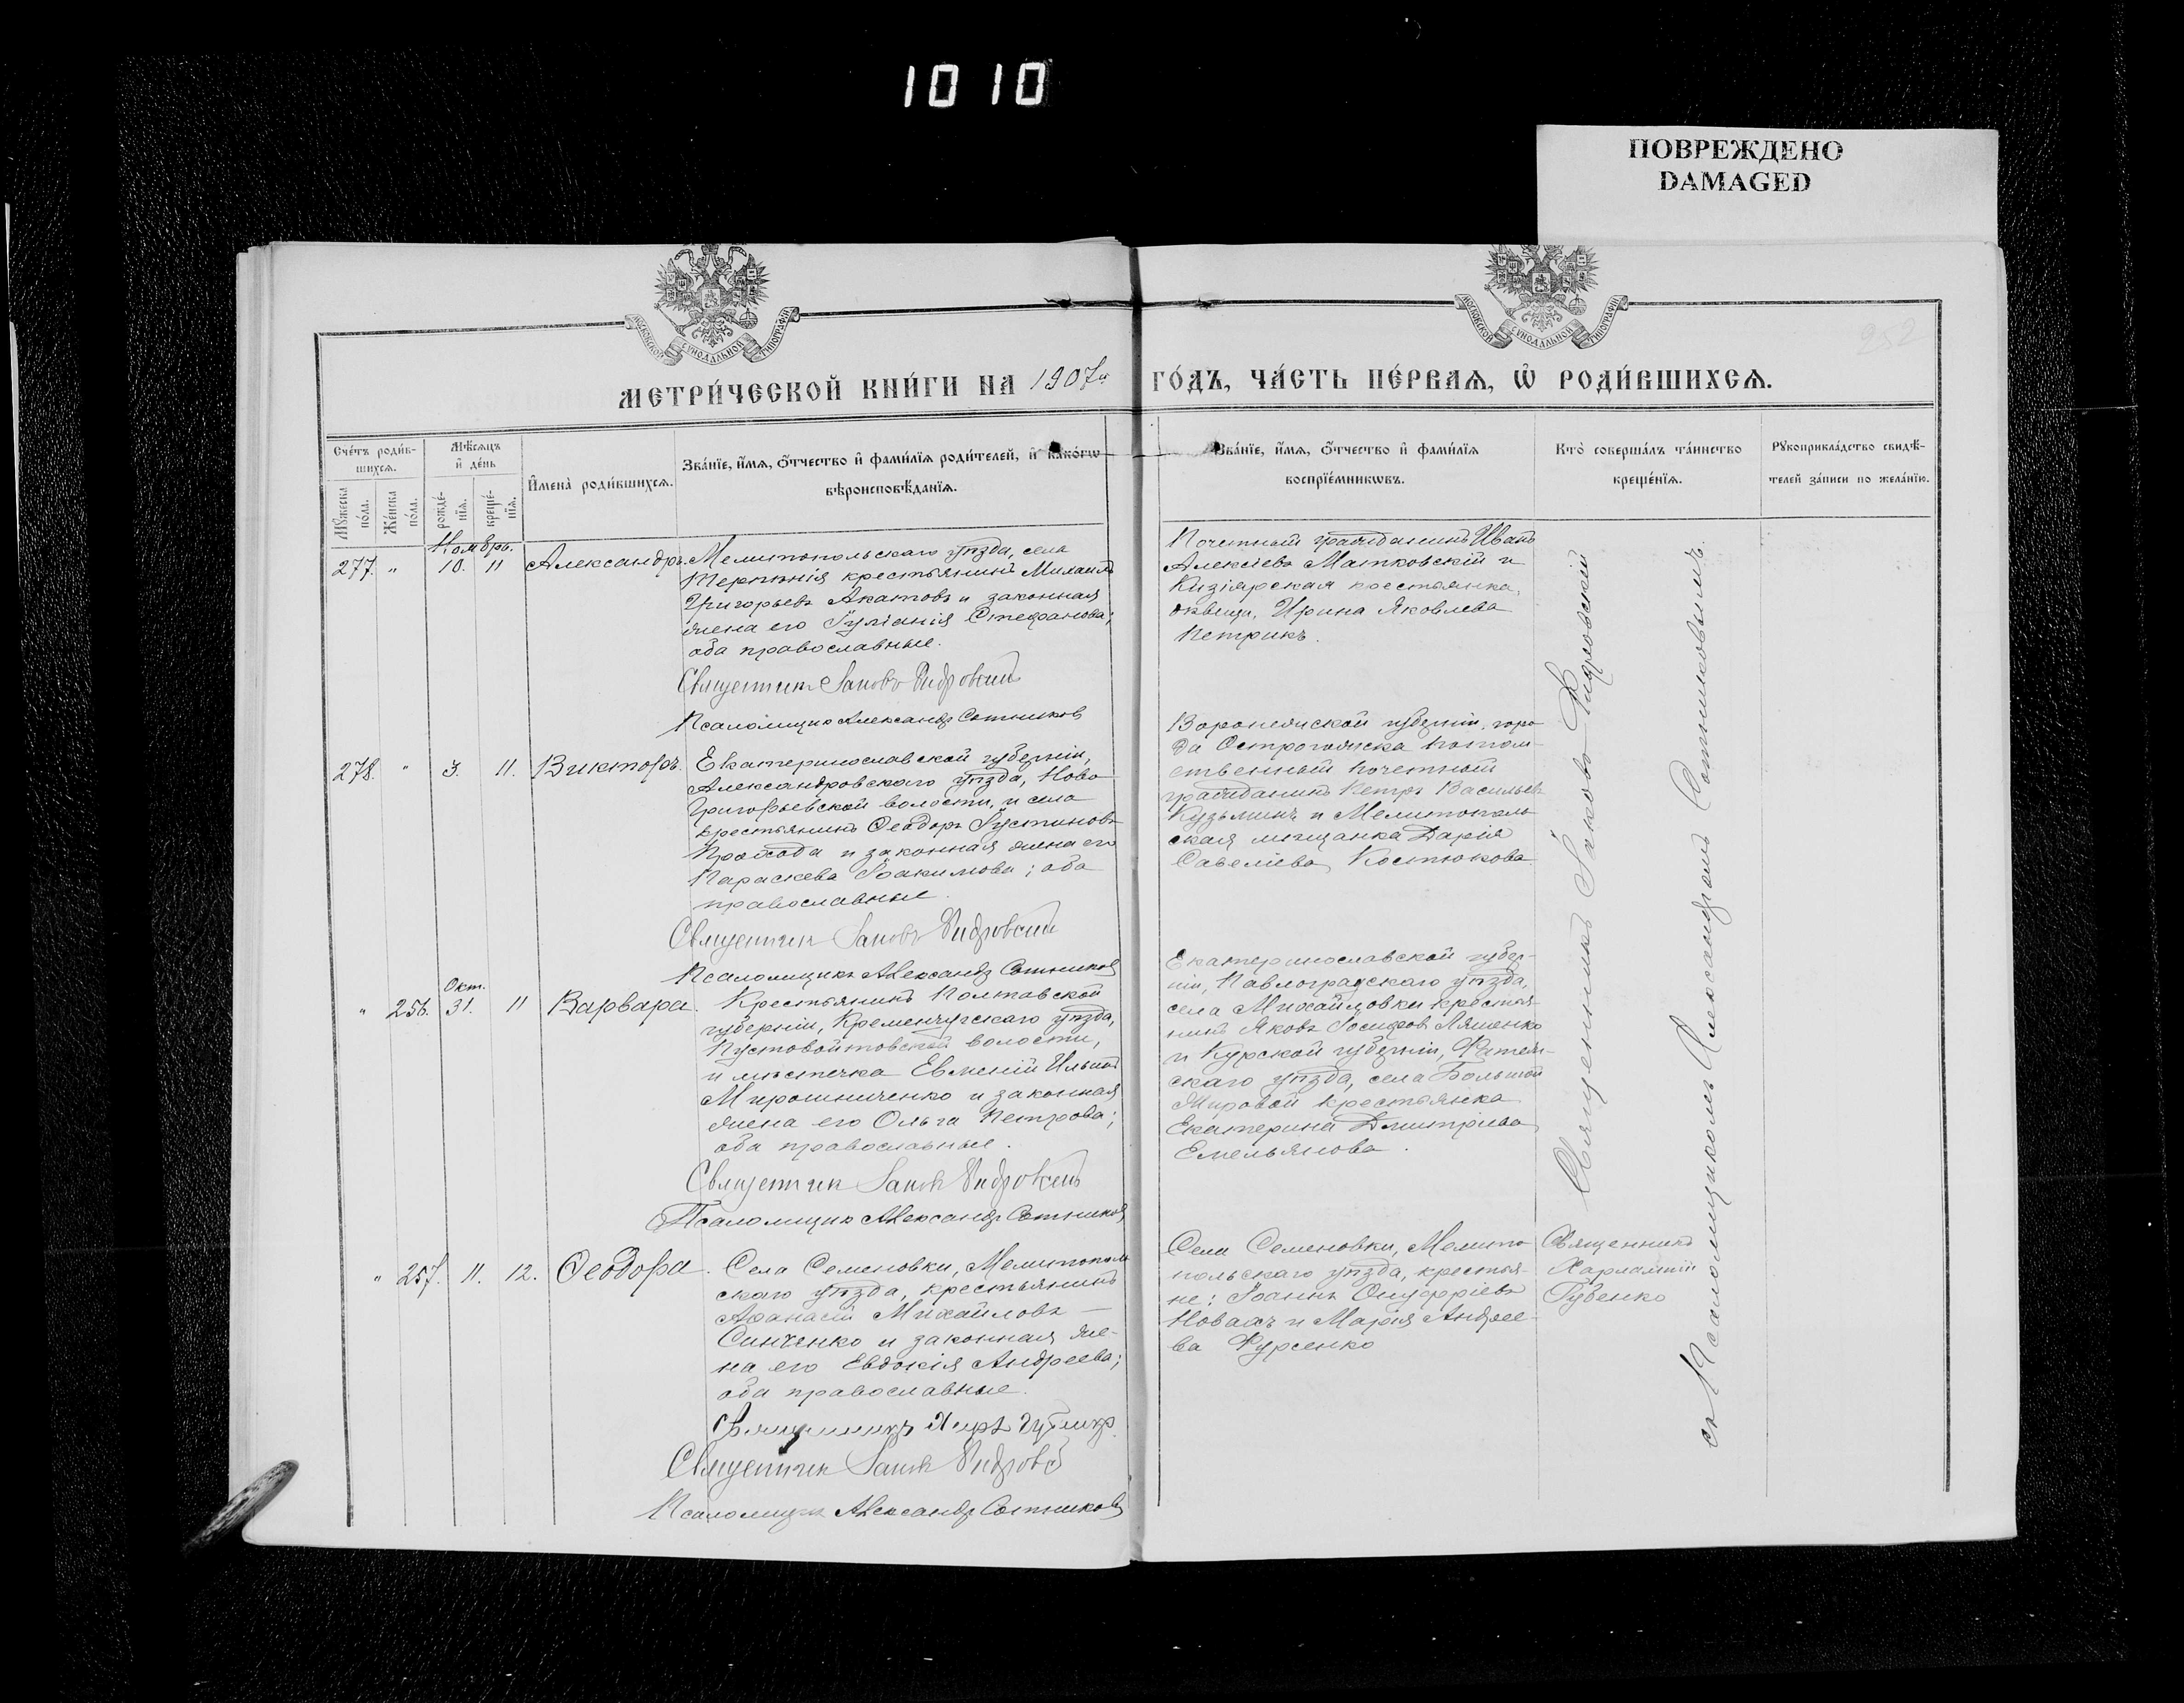 1010
ПОВРЕЖДЕНО
DAMAGED
МОСКОВСКОЙ СѴНОДАЛЬНОЙ ТИПОГРАФІИ
МОСКОВСКОЙ СѴНОДАЛЬНОЙ ТИПОГРАФІИ
252
МЕТРИ́ЧЕСКОЙ КНИ́ГИ НА 1907й ГО́ДЪ, ЧА́СТЬ ПЕ́РВАѦ, Ѡ҆ РОДИ́ВШИХСѦ.
Сче́тъ роди́в-
шихсѧ.
Мꙋ́жеска по́ла.
Же́нска по́ла.
Мѣ́сѧцъ и҆ де́нь
рожде́-
нїѧ.
креще́-
нїѧ.
И҆мена̀ роди́вшихсѧ.
Зва́нїе, и҆́мѧ, ѻ҆́тчество и҆ фами́лїѧ роди́телей, и҆ како́гѡ
вѣроисповѣ́данїѧ.
Зва́нїе, и҆́мѧ, ѻ҆́тчество и҆ фами́лїѧ
воспрїе́мникѡвъ.
Кто̀ соверша́лъ та́инство
креще́нїѧ.
Рꙋкоприкла́дство свидѣ́-
телей за́писи по жела́нїю.
Ноябрь.
277. " 10. 11 Александръ. Мелитопольскаго уѣзда, села
Терпѣнія крестьянинъ Михаилъ
Григорьевъ Акатовъ и законная
жена его Іуліанія Стефанова;
оба православные.
Священникъ Іаковъ
Псаломщикъ Александръ Сотниковъ
Почетный гражданинъ Иванъ
Алексіевъ Матковскій и
Кизіярская крестьянка,
дѣвица, Ирина Яковлева
Петрикъ.
278. " 3. 11. Викторъ. Екатеринославской губерніи,
Александровскаго уѣзда, Ново-
Григорьевской волости, и села
крестьянинъ Ѳеодоръ Іустиновъ
Проходa и законная жена его
Параскева Іоакимова; оба
православные.
Священникъ Іаковъ
Псаломщикъ Александръ Сотниковъ
Воронежской губерніи, горо-
да Острогожска потом-
ственный почетный
гражданинъ Петръ Васильевъ
Кузьминъ и Мелитополь-
ская мѣщанка Дарія
Савеліева Костюкова
Окт.
" 256. 31. 11 Варвара. Крестьянинъ Полтавской
губерніи, Кременчугскаго уѣзда,
Пустовойтовской волости,
и мѣстечка Евмений Ильинъ
Мирошниченко и законная
жена его Ольга Петрова;
оба православные.
Священникъ Іаковъ
Псаломщикъ Александръ Сотниковъ
Екатеринославской губер-
ніи, Павлоградскаго уѣзда,
села Михайловки крестья-
нинъ Яковъ Іосифовъ Ляшенко
и Курской губерніи, Фатеж-
скаго уѣзда, села Большой
Жировой крестьянка
Екатерина Дмитріева
Емельянова.
" 257. 11. 12. Ѳеодора. Села Семеновки, Мелитополь-
скаго уѣзда, крестьянинъ
Аѳанасій Михайловъ
Синченко и законная же-
на его Евдокія Андреева;
оба православные.
Священникъ
Священникъ Іаковъ
Псаломщикъ Александръ Сотниковъ
Села Семеновки, Мелито-
польскаго уѣзда, крестья-
не: Іоаннъ Онуфріевъ
Новакъ и Марія Андрее-
ва Фурсенко
Священникъ
Харлампій
Губенко
Священникъ Іаковъ
съ Псаломщикомъ Александромъ Сотниковымъ.